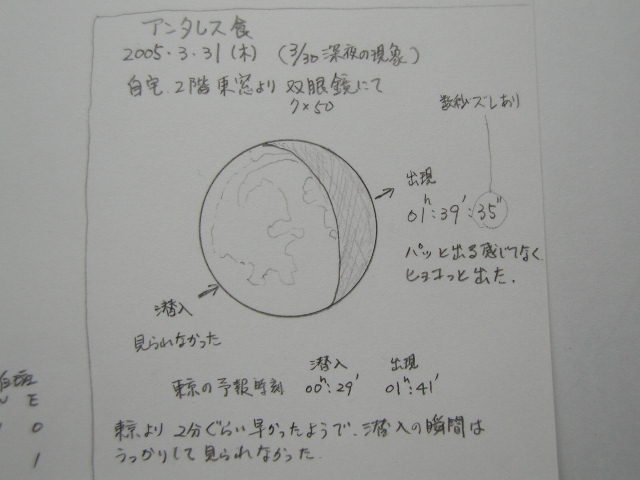 アンタレス食
2005.3.31(木) (3/30 深夜の現象)
自宅 2階東窓より 双眼鏡にて
7×50
数秒ズレあり
出現
01h:39':35"
パッと出る感じでなく
ヒョコっと出た.
潜入
見られなかった
潜入 出現
東京の予報時刻 00h:29' 01h:41'
東京より 2分ぐらい早かったようで、潜入の瞬間は
うっかりして見られなかった.
E
0
1